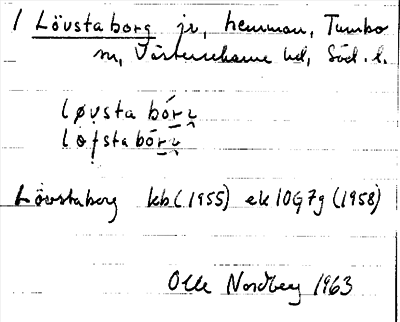 / Lövstaborg jr, hemman, Tumbo
sn, Västerrekarne hd, Söd. l.
løvsta bórᶎ
lofsta bórᶎ
Lövstaborg kb (1955) ek 10G7g (1958)
Olle Nordberg 1963